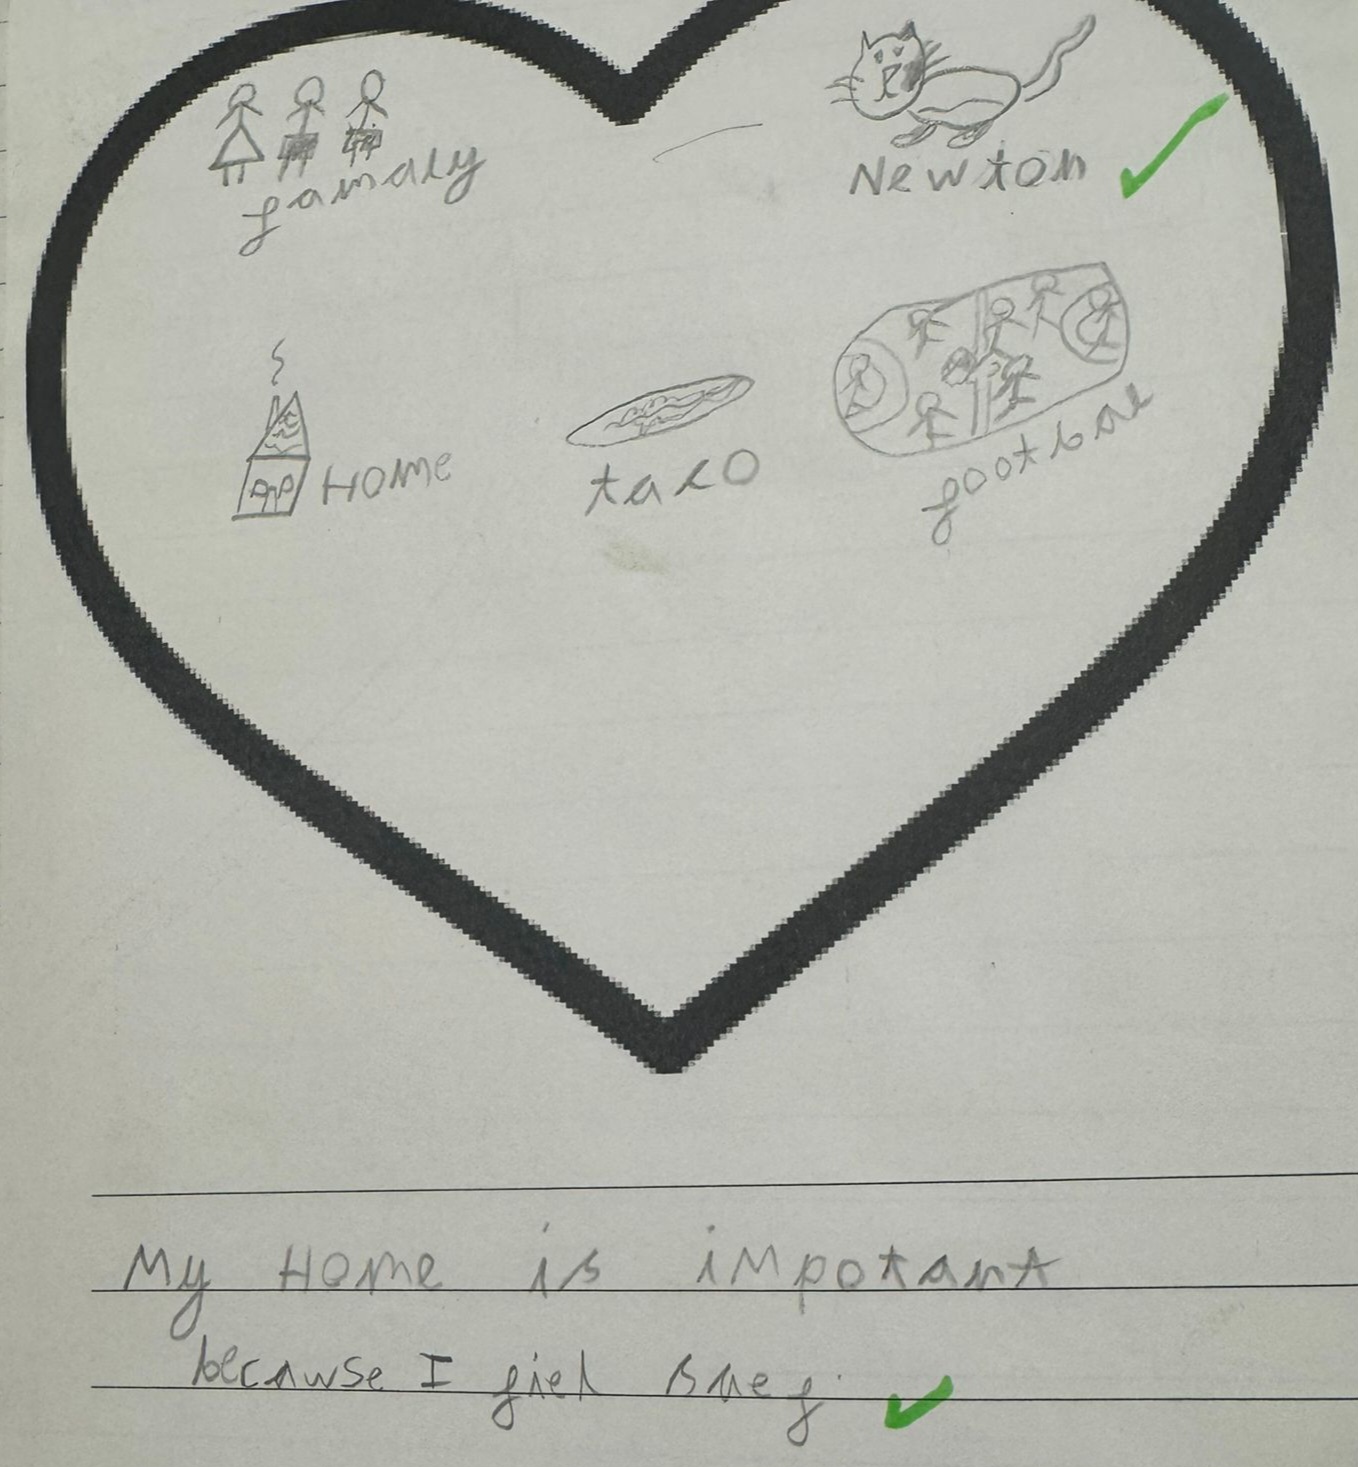 famaly
Newton
Home
taco
footbal
My Home is impotant
because I fiel saef.